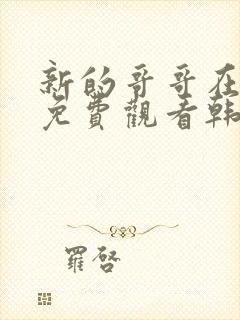 新的哥哥在
免費觀看韩
羅啓